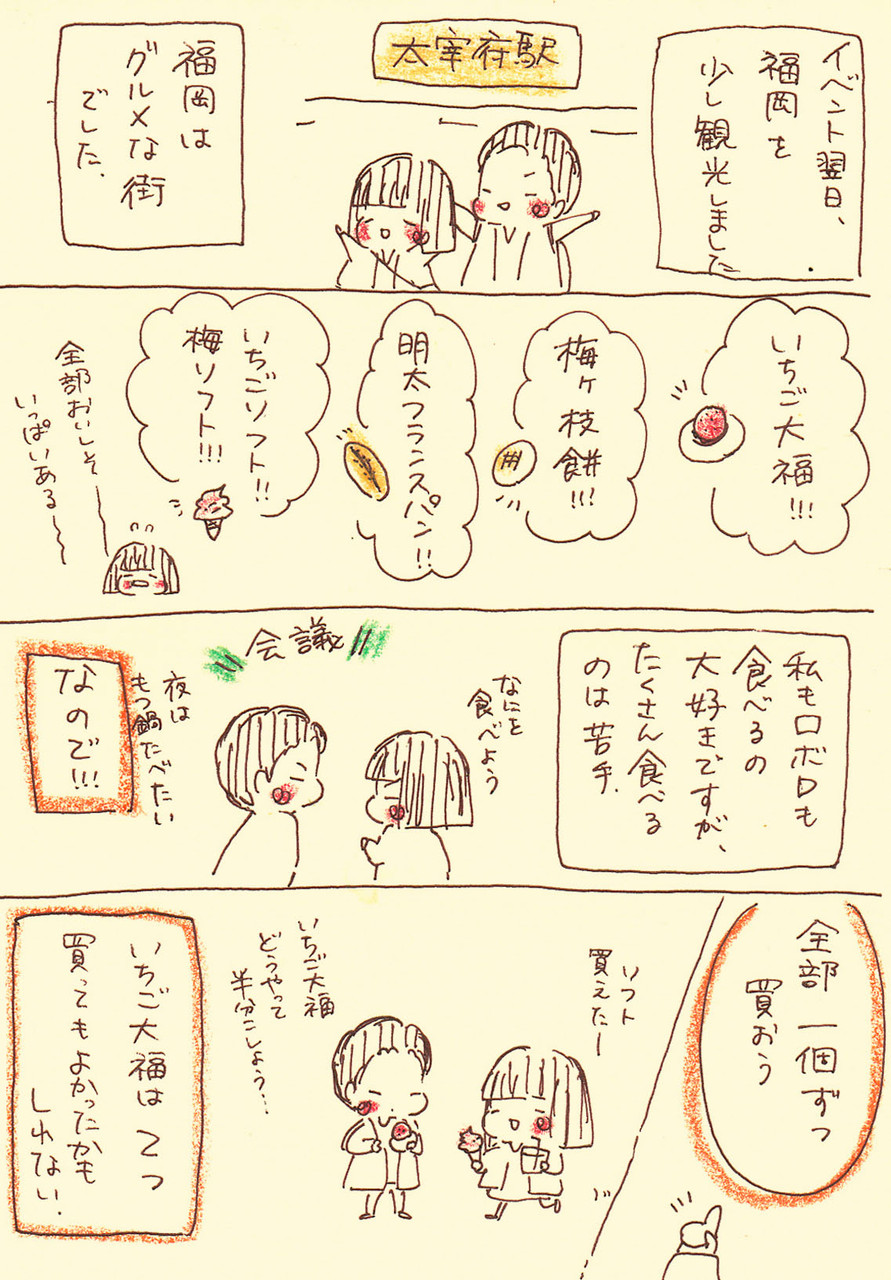 イベント翌日、
福岡を
少し観光しました.
太宰府駅
福岡は
グルメな街
でした.
いちご大福!!!
梅ヶ枝餅!!!
明太フランスパン!!
いちごソフト!!
梅ソフト!!!
全部おいしそ〜
いっぱいある〜〜
私もロボDも
食べるの
大好きですが、
たくさん食べる
のは苦手.
会議
なにを
食べよう
夜は
もつ鍋たべたい
なので!!!
全部一個ずつ
買おう
ソフト
買えたー
いちご大福
どうやって
半分こしよう…
いちご大福は2つ
買ってもよかったかも
しれない.